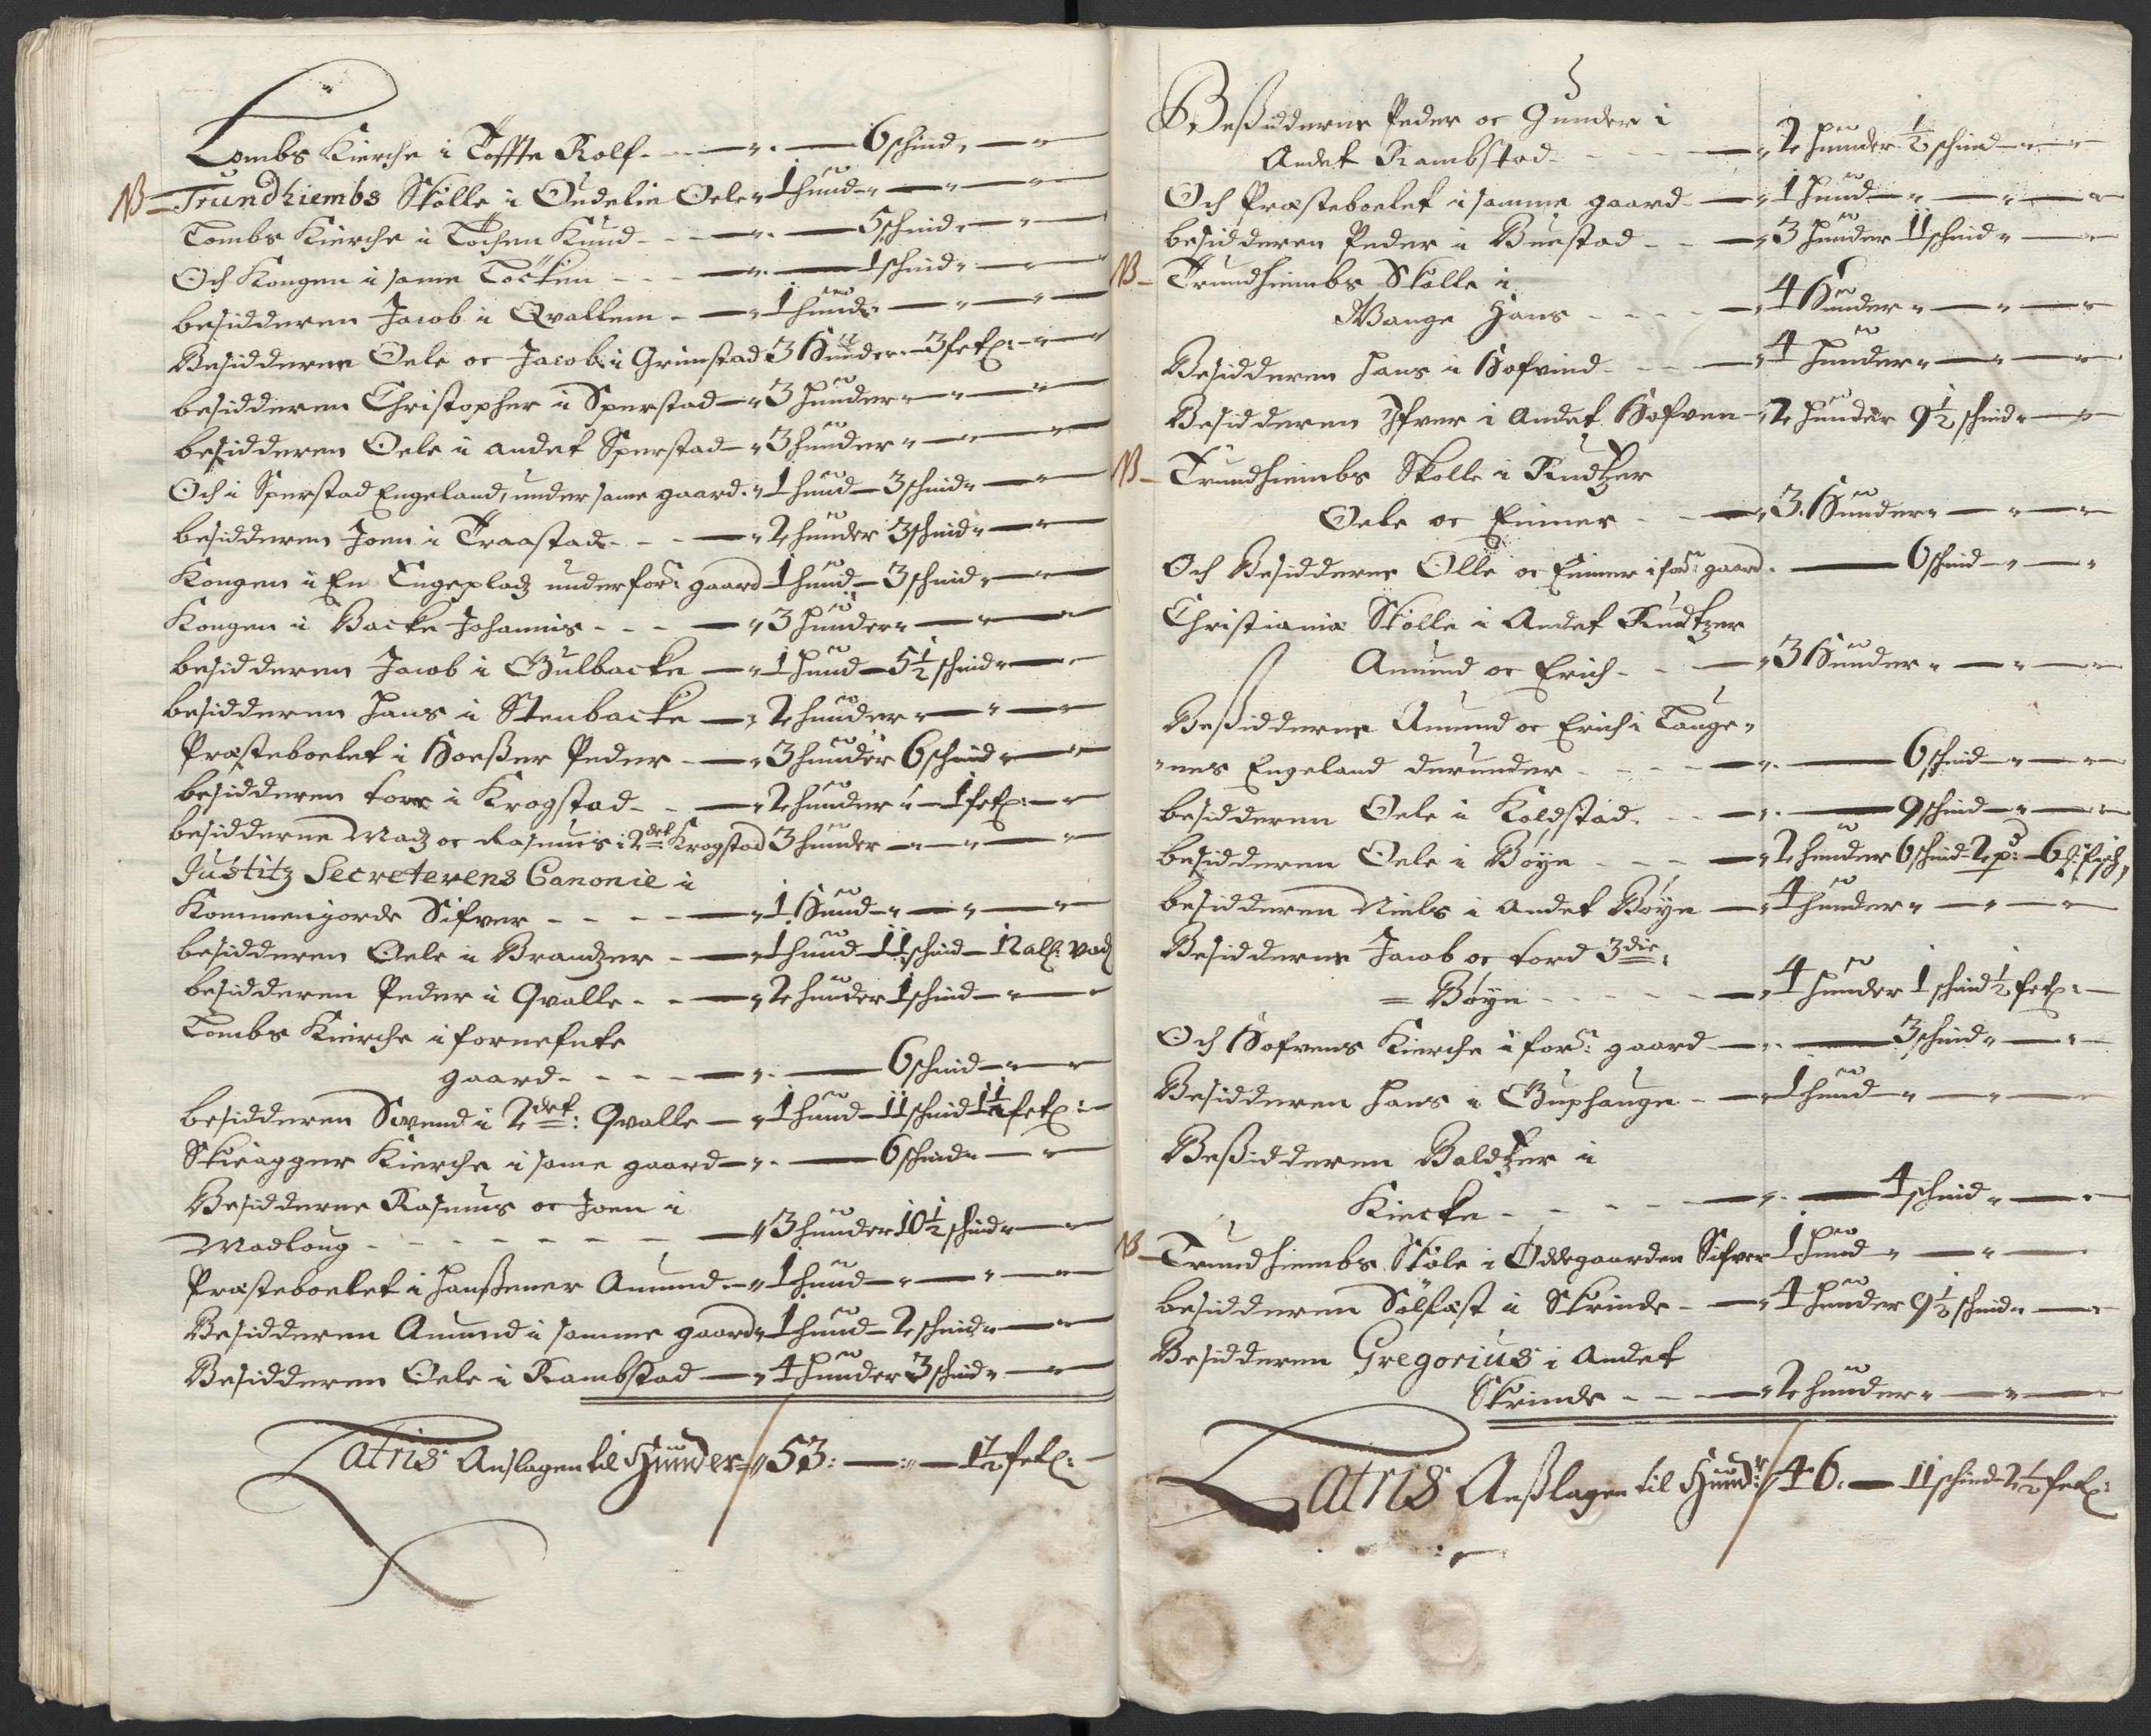 Lombs Kierche i Toffte Rolf - - - 6 schind
NB Trundhiembs Skolle i Oudelie Oele 1 hund
Lombs Kierche i Løchen Knud - - - 5 schind
Och Kongen i same Løcken - - - 1 schind
besidderen Jacob i Qvallem - 1 hund
Besidderne Oele oc Jacob i Grimstad 3 Hunder - 3 fetl:
besidderen Christopher i Sperstad 3 hunder
besidderen Oele i andet Sperstad 3 hunder
Och i Sperstad Engeland, under same gaard 1 hund 3 schind
besidderen Joen i Traastad - - - 2 hunder 3 schind
Kongen i En Engepladz under for: gaard 1 hund 3 schind
Kongen i Backe Johannis - - - 3 hunder
besidderen Jacob i Gulbacke 1 hund 5½ schind
besidderen Hans i Stenbacke 2 hunder
Præsteboelet i Hoeßer Peder - 3 hunder 6 schind
besidderen tore i Krogstad - - 2 hunder 1 fetl:
besidderne Madz oc Rasmus i 2det Krogstad 3 hunder
Justitz Secreterens Canonie i
Kommenjorde Sifver - - - - 1 Hund
besidderen Oele i Brandzer 1 hund 11 schind 12 all: vad
besidderen Peder i Qvalle - - 2 hunder 1 schind
Lombs Kierche i fornefnte
gaard - - - - 6 schind
besidderen Svend i 2det: Qvalle 1 hund 11 schind 1½ fetl:
Skieagger Kierche i same gaard 6 schind
Besidderne Rasmus oc Joen i
Madloug - - - - - - - 3 hunder 10½ schind
Præsteboelet i Hanßener Amund 1 hund
Besidderen Amund i samme gaard 1 hund 2 schind
Besidderen Oele i Rambstad 4 hunder 3 schind
Latris Anslagen til Hunder 53: 1½ fetl:
Beßidderne Peder oc Gunder i
Andet Rambstad - - - 2 hunder ½ schind
Och Præsteboelet i samme gaard 1 hund
besidderen Peder i Buestad - - 3 hunder 11 schind
NB Trundhiembs Skolle i
Wange Hans - - - - 4 Hunder
Besidderen Hans i Hofvind - - - 4 hunder
Besidderen Ifver i Andet Hofven 2 hunder 9½ schind
NB Trundhiembs Skolle i Rudtzer
Oele oc Einer - - 3 Hunder
Och Besidderne Olle oc Einer i for: gaard 6 schind
Christiania Skolle i Andet Rudtzer
Amund oc Erich - - 3 Hunder
Beßidderne Amund oc Erich i Tange
nes Engeland derunder - - - - 6 schind
besidderen Oele i Koldstad - - - 9 schind
besidderen Oele i Bøye - - - 2 hunder 6 schind
besidderen Niels i andet Bøye 4 hunder
Besidderne Jacob oc tord 3die
= Bøye - - - - - 4 hunder 1 schind ½ fetl:
Och Hofvens Kierche i for: gaard 3 schind
Besidderen Hans i Guphauge 1 hund
Beßidderen Baldtzer i
Kircke - - - - - 4 schind
NB Trundhiembs Skole i Ødegaarden Sifver 1 hund
besidderen Solfæst i Skrinde 4 hunder 9½ schind
Besidderen Gregorius i Andet
Skrinde - - - 2 hunder
Latris Anßlagen til Hund: 46: 11 schind 2½ fetl: